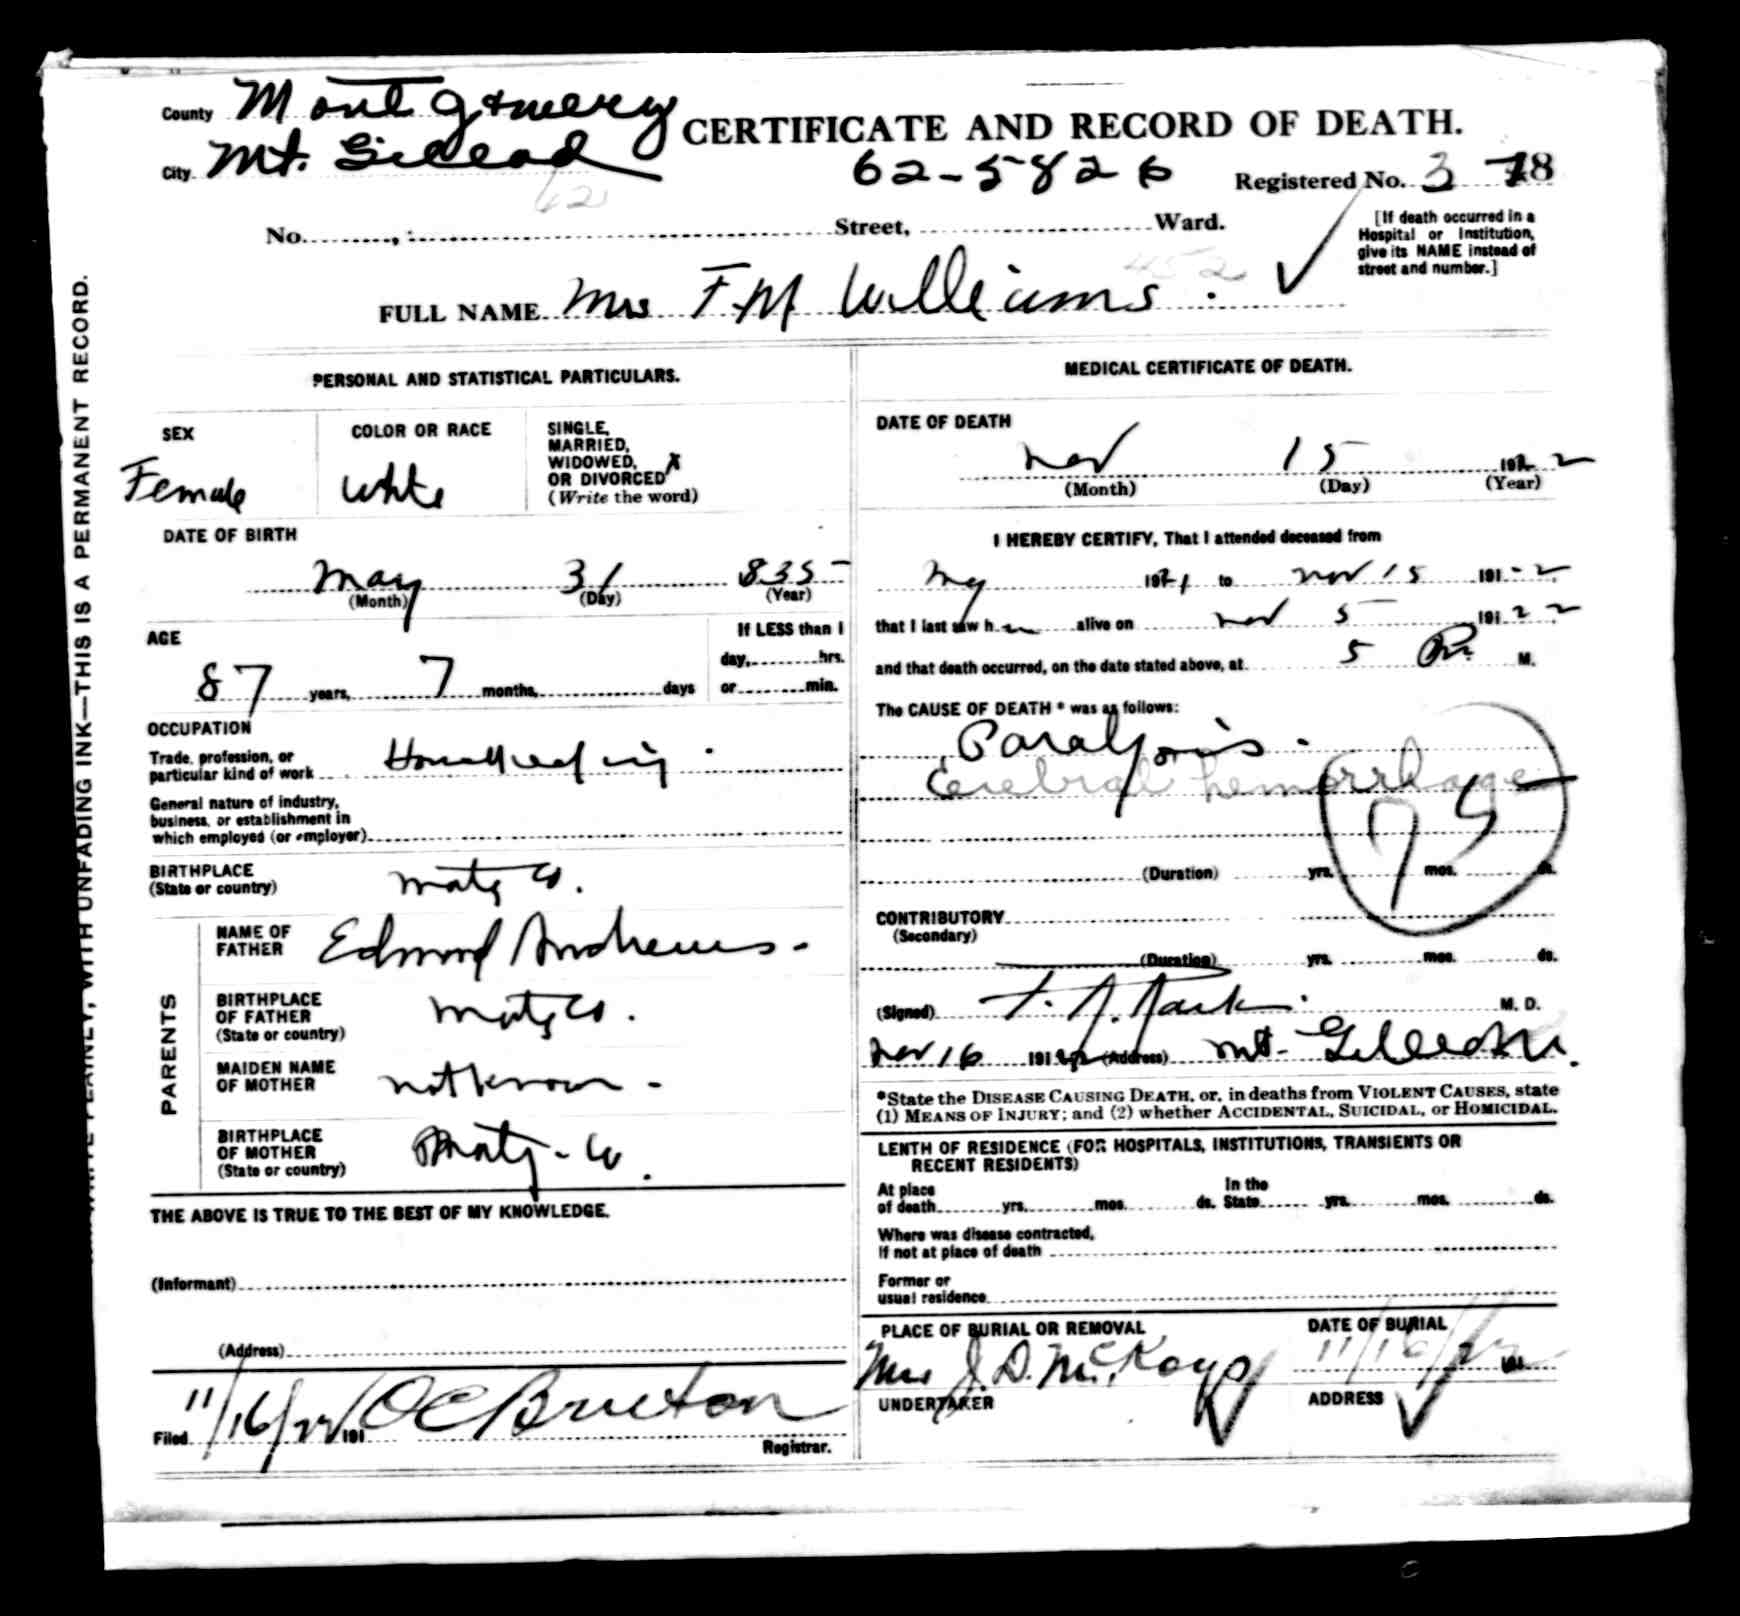 County Montgomery
CERTIFICATE AND RECORD OF DEATH.
City Mt. Gilead
62-5826
Registered No. 3 78
62
No. Street, Ward.
[If death occurred in a
Hospital or Institution,
give its NAME instead of
street and number.]
452
FULL NAME Mrs F.M Williams.
WITH UNFADING INK—THIS IS A PERMANENT RECORD.
PERSONAL AND STATISTICAL PARTICULARS.
SEX
Female
COLOR OR RACE
White
SINGLE,
MARRIED,
WIDOWED, X
OR DIVORCED
(Write the word)
DATE OF BIRTH
May 31 835
(Month) (Day) (Year)
AGE
87 years, 7 months, days
If LESS than 1
day, hrs.
or min.
OCCUPATION
Trade, profession, or
particular kind of work Housekeeping.
General nature of industry,
business, or establishment in
which employed (or employer)
BIRTHPLACE
(State or country) Motg Co.
PARENTS
NAME OF
FATHER Edmond Andrews.
BIRTHPLACE
OF FATHER
(State or country) Motg Co.
MAIDEN NAME
OF MOTHER not known -
BIRTHPLACE
OF MOTHER
(State or country) Motg - Co.
THE ABOVE IS TRUE TO THE BEST OF MY KNOWLEDGE.
(Informant)
(Address)
Filed 11/16/22 191 Registrar.
MEDICAL CERTIFICATE OF DEATH.
DATE OF DEATH
Nov 15 1922
(Month) (Day) (Year)
I HEREBY CERTIFY, That I attended deceased from
1921 to Nov 15 191-2
that I last saw h alive on Nov 5 191 22
and that death occurred, on the date stated above, at 5 P. M.
The CAUSE OF DEATH * was as follows:
Paralysis.
Cerebral hemorrhage
75
(Duration) yrs. mos. ds.
CONTRIBUTORY
(Secondary)
(Duration) yrs. mos. ds.
(Signed) M. D.
Nov 16 191 (Address) Mt- Gilead
*State the DISEASE CAUSING DEATH, or, in deaths from VIOLENT CAUSES, state
(1) MEANS OF INJURY; and (2) whether ACCIDENTAL, SUICIDAL, or HOMICIDAL.
LENTH OF RESIDENCE (FOR HOSPITALS, INSTITUTIONS, TRANSIENTS OR
RECENT RESIDENTS)
At place
of death yrs. mos. ds.
In the
State yrs. mos. ds.
Where was disease contracted,
If not at place of death
Former or
usual residence
PLACE OF BURIAL OR REMOVAL
Mrs J.D. McKays
DATE OF BURIAL
11/16/22 191
UNDERTAKER
ADDRESS